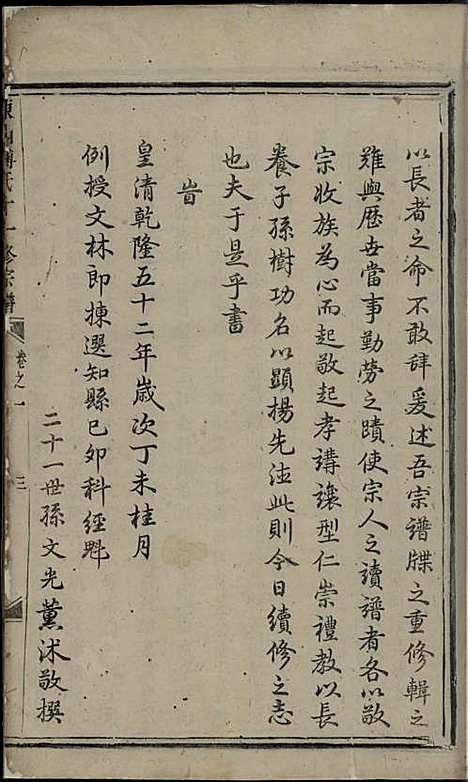 以長者之命不敢辞爰述吾宗譜牒之重修輯之
難與歷世當事勤勞之蹟使宗人之讀譜者各以敬
宗收族為心而起敬起孝講讓型仁崇禮教以長
養子孫樹功名以顯揚先法此則今日續修之志
也夫于是乎書
旹
皇清乾隆五十二年歲次丁未桂月
例授文林郎揀選知縣己夘科經魁
二十一世孫文光薰沭敬撰
氏十一修宗譜
卷之一
三